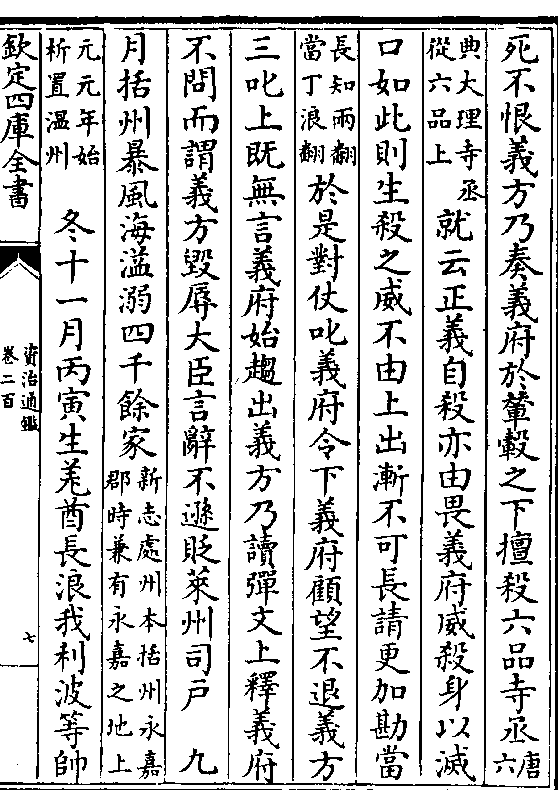 死不恨義方乃奏義府於輦轂之下擅殺六品寺丞唐六
典大理寺丞
從六品上
就云正義自殺亦由畏義府威殺身以滅
口如此則生殺之威不由上出漸不可長請更加勘當
長知雨翻
當丁浪翻
於是對仗叱義府令下義府顧望不退義方
三叱上既無言義府始趨出義方乃讀彈文上釋義府
不問而謂義方毀辱大臣言辭不遜貶萊州司戶 九
月括州暴風海溢溺四千餘家
新志處州本括州永嘉
郡時兼有永嘉之地上
元元年始
析置溫州
冬十一月丙寅生羌酋長浪我利波等帥
欽定四庫全書
資治通鑑
卷二百
七